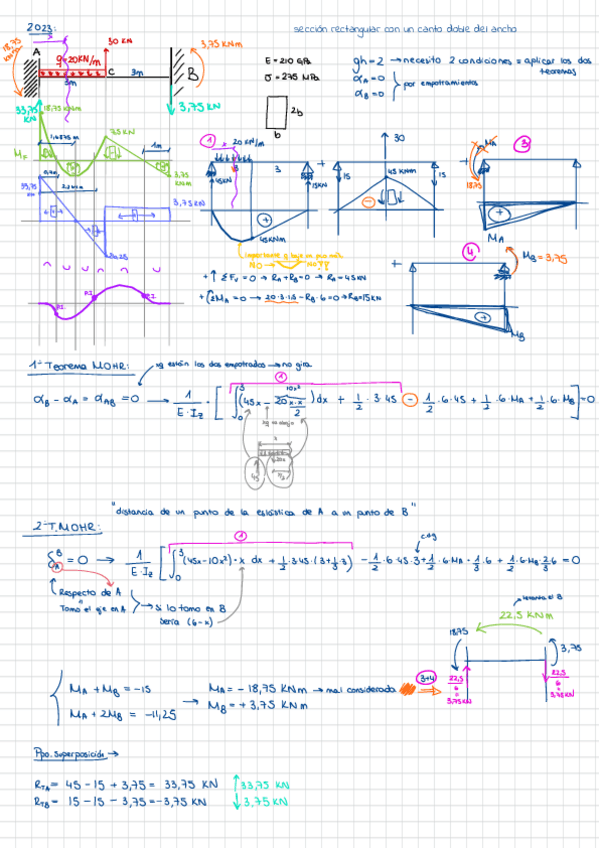 2023:
sección rectangular con un canto doble del ancho
30 KN
18,75 KNm
A
q=20KN/m
C
3m
3m
B
3,75 KNm
3,75 KN
33,75 KN
E = 210 GPa
σ = 275 MPa
2b
b
gh=2 → necesito 2 condiciones = aplicar los dos teoremas
αA=0
αB=0
por empotramientos
18,75 KNm
7,5 KN
1m
3,75 KNm
MF
33,75 KN
3,75 KN
1
20 KN/m
3
45KN
15KN
45KNm
+
30
15
15
45 KNm
+
3
MA
18,75
MA
+
4
MB = 3,75
MB
NO →
+↑ ΣFv = 0 → RA+RB=0 → RA=45KN
+ ΣMA = 0 → 20·3·1,5 - RB·6=0 → RB=15KN
1er Teorema MOHR:
están los dos empotrados → no gira
1
αB - αA = αAB = 0 → 1/E·Iz · [ ∫₀³ (45x - 20x·x/2) dx + 1/2 · 3·45 - 1/2 · 6·45 + 1/2 · 6·MA + 1/2 · 6·MB ] = 0
10x²
45
"distancia de un punto de la elástica de A a un punto de B"
2º T.MOHR:
1
cdg
δA^B = 0 → 1/E·Iz [ ∫₀³ (45x-10x²)·x dx + 1/2·3·45·(3+1/3·3) - 1/2·6·45·3 + 1/2·6·MA·1/3·6 + 1/2·6·MB·2/3·6 = 0
Respecto de A
Tomo el eje en A
→ si lo tomo en B
sería (6-x)
22,5 KNm
18,75
3,75
3+4
22,5/6 = 3,75KN
22,5/6 = 3,75KN
MA + MB = -15
MA + 2MB = -11,25
→ MA = -18,75 KNm → mal considerado
MB = +3,75 KNm
Ppo. Superposición →
RTA = 45 - 15 + 3,75 = 33,75 KN ↑33,75 KN
RTB = 15 - 15 - 3,75 = -3,75 KN ↓3,75 KN